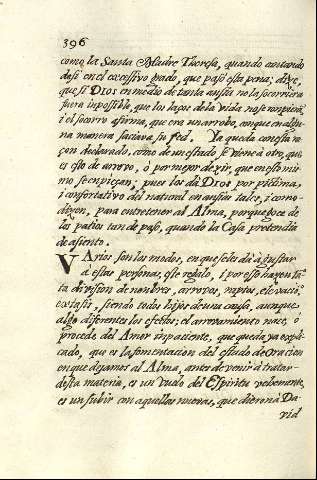 396
como la Santa Madre Theresa, quando contando
de si en el excessivo grado, que pasó esta pena; dize,
que si Dios en medio de tanta ansia no la socorriera
fuera inpossible, que los laços de la vida no se ronpieran
i el socorro afirma, que era un arrobo, con que en algu-
na manera saciava su sed. Ya queda con esta ra-
çon declarado, como de un estado se viene à otro, que
es este de arrovo, ò por mejor dezir, que en este mis
mo se enpieçan; pues los dà Dios por pictima,
i confortativo del natural en ansias tales, i como
dixen, para entretener al Alma, porque goce de
los patios tan de paso, quando la Casa pretendia
de asiento.
VArios son los modos, en que se les dà à gustar
à estas personas, este regalo, i por esso hay en tan
ta division de nombres, arrovos, raptos, elevacion
extasis, siendo todos hijos de una causa, aunque
algo diferentes los efectos; el arrovamiento nace, ò
procede del Amor inpaciente, que queda ya expli-
cado, que es la fomentacion del estado de Oracion
en que dexamos al Alma, antes de venir à tratar
desta materia, es un vuelo del Espiritu vehemente,
es un subir con aquellas nuevas, que dieron à Da
vid